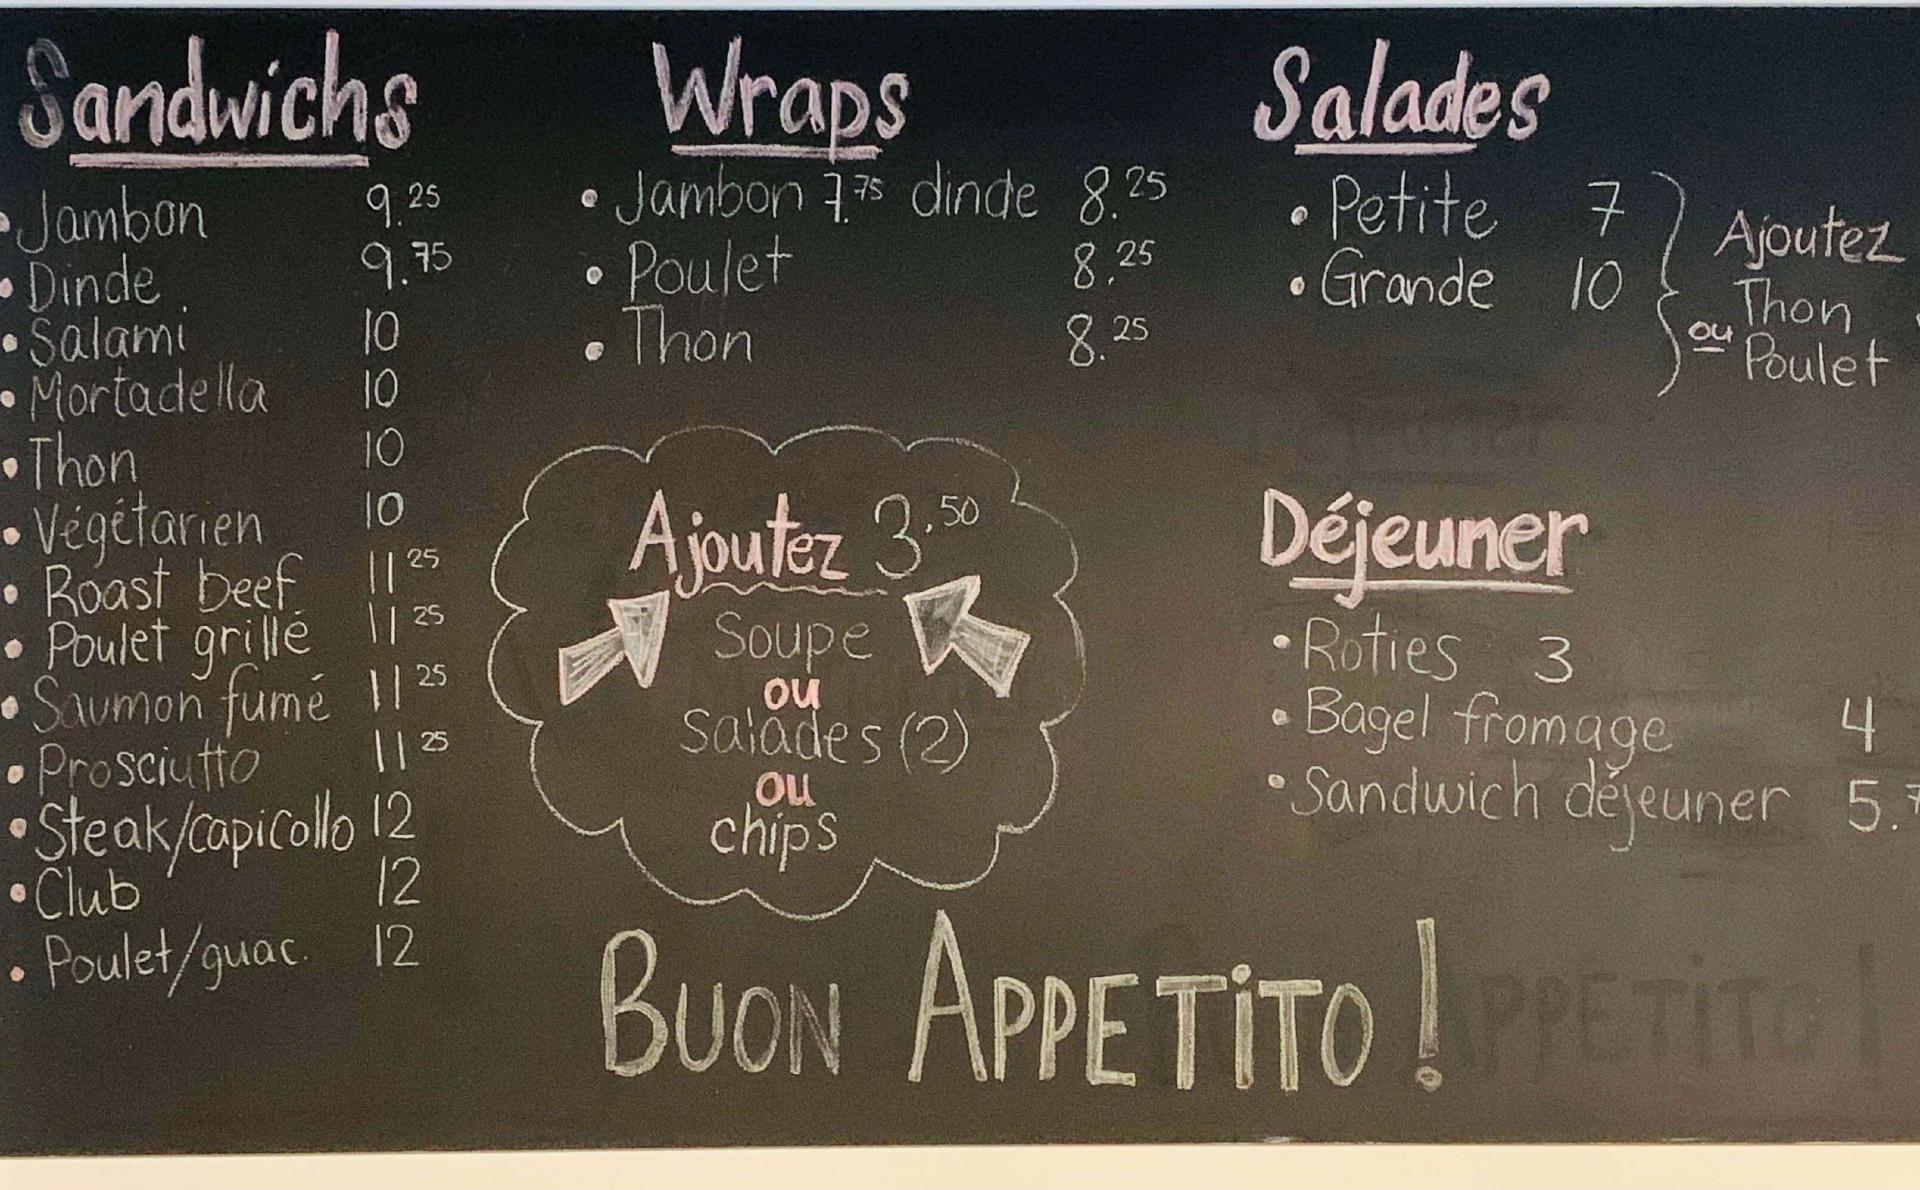 Sandwichs
• Jambon 9.25
• Dinde 9.75
• Salami 10
• Mortadella 10
• Thon 10
• Végétarien 10
• Roast beef 11 25
• Poulet grillé 11 25
• Saumon fumé 11 25
• Prosciutto 11 25
• Steak/capicollo 12
• Club 12
• Poulet/guac. 12
Wraps
• Jambon 7.75 dinde 8.25
• Poulet 8.25
• Thon 8.25
Ajoutez 3.50
Soupe
ou
Salades (2)
ou
chips
Salades
• Petite 7
• Grande 10
Ajoutez
Thon
ou Poulet
Déjeuner
• Roties 3
• Bagel fromage 4
• Sandwich déjeuner 5.
BUON APPETiTO!
APPETiTO!